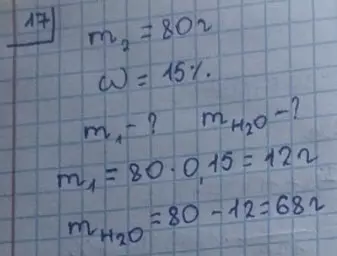 17
m₂ = 80г
ω = 15%.
m₁ - ? m_H2O - ?
m₁ = 80 · 0,15 = 12г
m_H2O = 80 - 12 = 68г